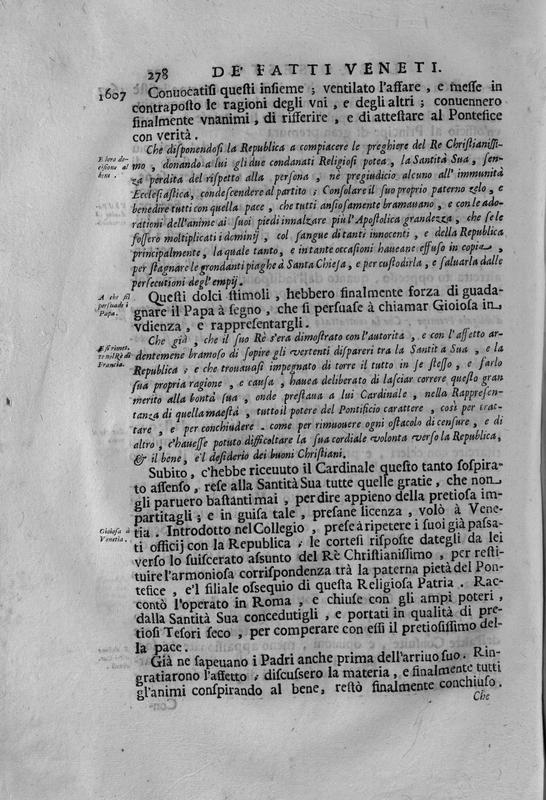 278 DE' FATTI VENETI.
1607 Conuocatisi questi insieme ; ventilato l'affare , e messe in
contraposto le ragioni degli vni , e degli altri ; conuennero
finalmente vnanimi , di risferire , e di attestare al Pontefice
con verità .
Che disponendosi la Republica a compiacere le preghiere del Re Christianissi-
mo , donando a lui gli due condanati Religiosi potea , la Santità Sua , sen-
za perdita del rispetto alla persona , nè pregiudicio alcuno all' immunità
Ecclesiastica, condescendere al partito ; Consolare il suo proprio paterno zelo , e
benedire tutti con quella pace , che tutti ansiosamente bramauano , e con le ado-
rationi dell'anime ai suoi piedi innalzare più l'Apostolica grandezza , che se le
fossero moltiplicati i dominij , col sangue di tanti innocenti , e della Republica
principalmente, la quale tanto , e in tante occasioni haueane effuso in copia ,
per stagnare le grondanti piaghe à Santa Chiesa, e per custodirla, e saluarla dalle
persecutioni degl' empij.
A che si
persuade i
Papa.
Questi dolci stimoli , hebbero finalmente forza di guada-
gnare il Papa à segno , che si persuase à chiamar Gioiosa in
vdienza , e rappresentargli .
Che già , che il suo Rè s'era dimostrato con l'autorità , e con l'affetto ar-
dentemene bramoso di sopire gli vertenti dispareri tra la Santità Sua , e la
Republica ; e che trouauasi impegnato di torre il tutto in se stesso , e farlo
sua propria ragione , e causa , hauea deliberato di lasciar correre questo gran
merito alla bontà sua , onde prestaua a lui Cardinale , nella Rappresen-
tanza di quella maestà , tutto il potere del Pontificio carattere , così per trat-
tare , e per conchiudere . come per rimuouere ogni ostacolo di censure , e di
altro , c'hauesse potuto difficoltare la sua cordiale volontà verso la Republica,
& il bene , e'l desiderio dei buoni Christiani.
Subito, c'hebbe riceuuto il Cardinale questo tanto sospira-
to assenso, rese alla Santità Sua tutte quelle gratie, che non
gli paruero bastanti mai , per dire appieno della pretiosa im-
partitagli ; e in guisa tale , presane licenza , volò à Vene-
Gioiosa à
Venetia.
tia . Introdotto nel Collegio , prese à ripetere i suoi già passa-
ti officij con la Republica ; le cortesi risposte dategli da lei
verso lo suiscerato assunto del Rè Christianissimo , per resti-
tuire l'armoniosa corrispondenza trà la paterna pietà del Pon-
tefice , e'l filiale ossequio di questa Religiosa Patria . Rac-
contò l'operato in Roma , e chiuse con gli ampi poteri ,
dalla Santità Sua concedutigli , e portati in qualità di pre-
tiosi Tesori seco , per comperare con essi il pretiosissimo del-
la pace .
Già ne sapeuano i Padri anche prima dell'arriuo suo . Rin-
gratiarono l'affetto ; discussero la materia , e finalmente tutti
gl'animi conspirando al bene, restò finalmente conchiuso .
Che